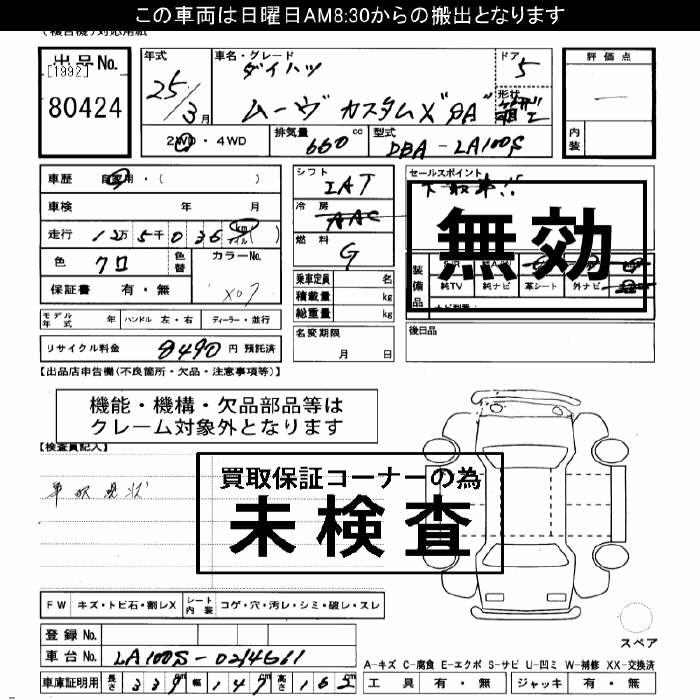 この車両は日曜日AM8:30からの搬出となります
出品No.
[1992]
80424
年式
25/3月
車名・グレード
ダイハツ
ムーヴ カスタムX"SA"
ドア
5
形状
評価点
内装
2WD・4WD
排気量
660cc
型式
DBA-LA100S
車歴 自家用・( )
車検 年 月
走行 12万5千036km マイル( )
色 クロ
色替
カラーNo.
X07
保証書 有・無
シフト
IAT
冷房
AAC
燃料
G
乗車定員 名
積載量 kg
総重量 kg
セールスポイント
無効
装備品
純TV 純ナビ 革シート 外ナビ
モデル年式 年 ハンドル 左・右 ディーラー・並行
名変期限
月 日
後日品
リサイクル料金 8490円 預託済
【出品店申告欄(不良箇所・欠品・注意事項等)】
機能・機構・欠品部品等は
クレーム対象外となります
【検査員記入】
買取保証コーナーの為
未検査
FW キズ・トビ石・割レX シート内装 コゲ・穴・汚レ・シミ・破レ・スレ
登録No.
車台No. LA100S-0214611
スペア
A-キズ C-腐食 E-エクボ S-サビ U-凹ミ W-補修 XX-交換済
車庫証明用 長さ 339cm 幅 147cm 高さ 162
工具 有・無 ジャッキ 有・無